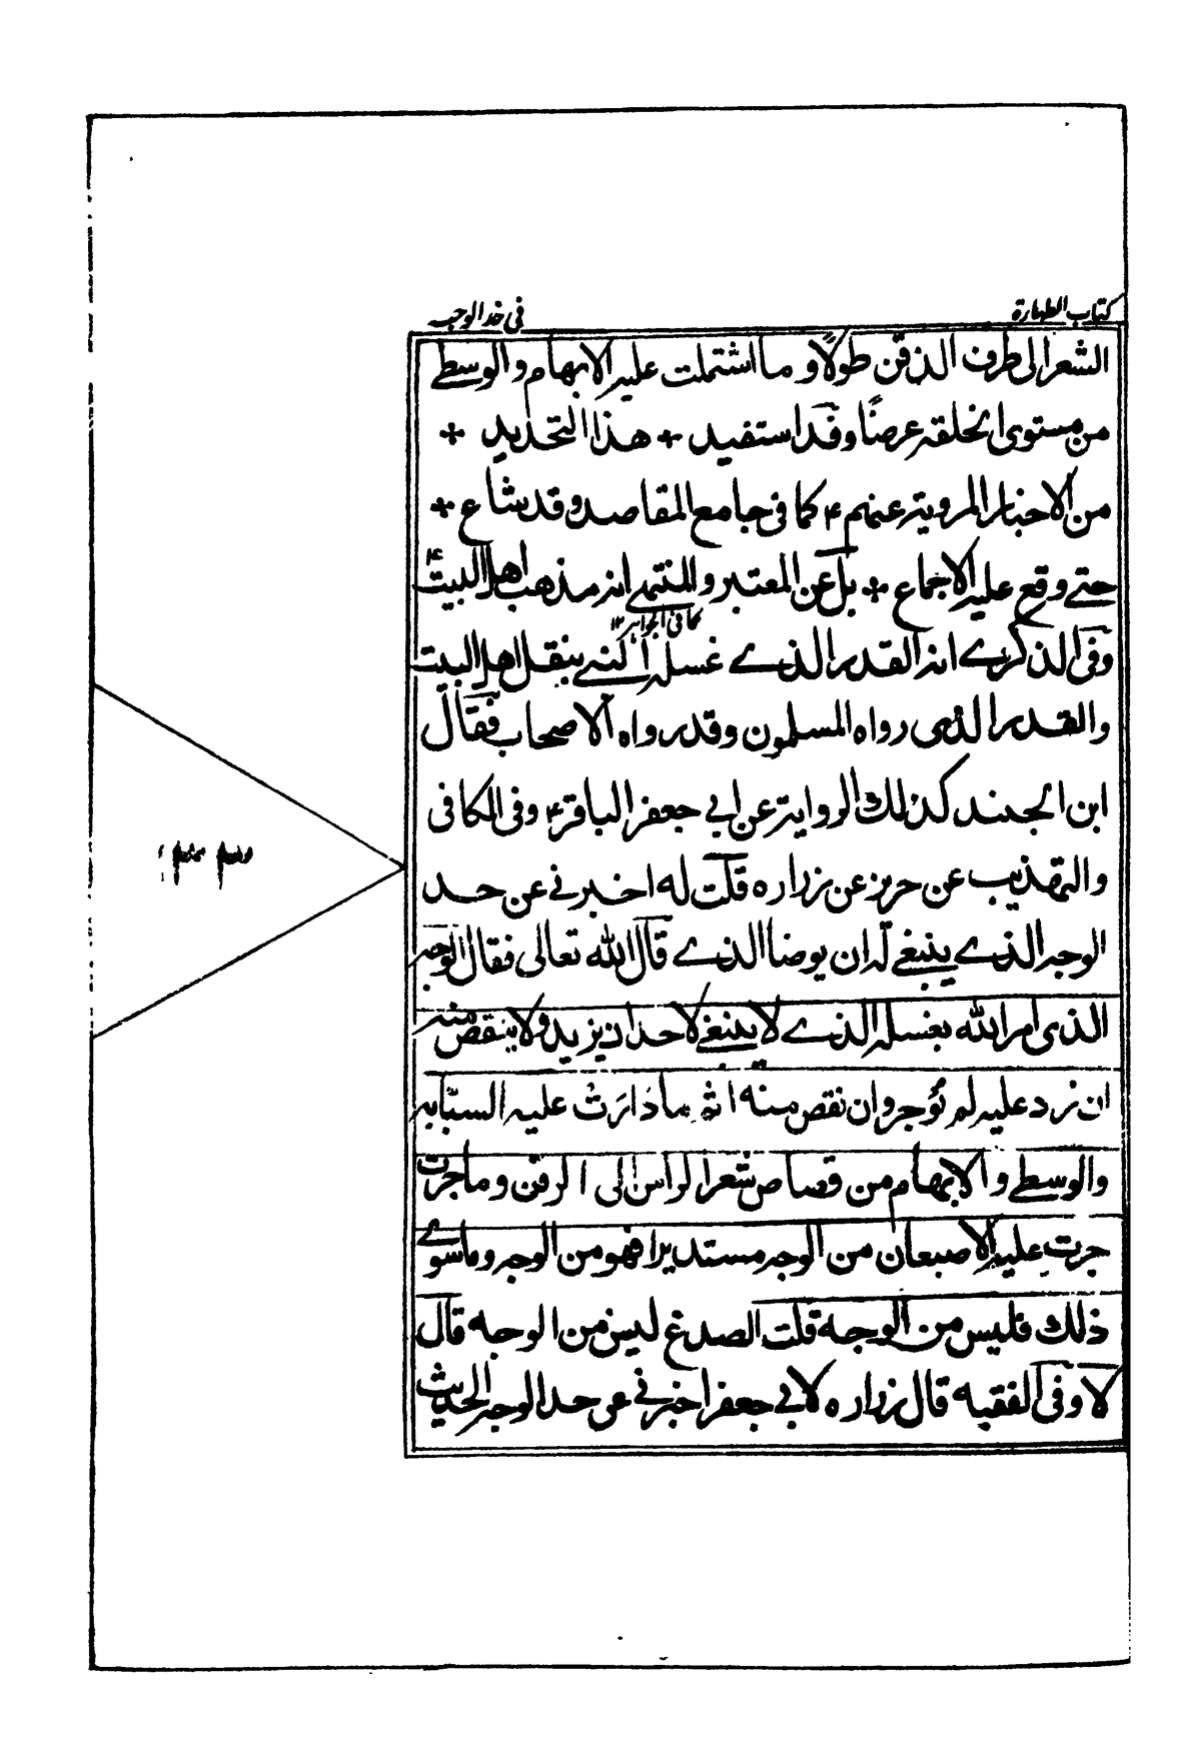 كتاب الطهارة
في حد الوجه
الشعر الى طرف الذقن طولًا وما اشتملت عليه الابهام والوسطے
من مستوى الخلقه عرضًا وقد استفيد * هذا التحديد *
من الاخبار المرويه عنهم ۴ كما فى جامع المقاصد وقد شاع *
حتے وقع عليه الاجماع * بل عن المعتبر والمنتهے انه مذهب اهل البيت ۴
كما فى الجواهر ۱۲
وفى الذكرے انه القدر الذے غسله النبے بنقل اهل البيت
والقدر الذى رواه المسلمون وقد رواه الاصحاب فقال
ابن الجنيد كذلك الروايه عن ابي جعفر الباقر ۴ وفى الكافى
والتهذيب عن حريز عن زراره قلت له اخبرنے عن حد
الوجه الذے ينبغے له ان يوضا الذے قال الله تعالى فقال الوجه
الذى امر الله بغسله الذے لا ينبغے لاحد ان يزيد ولا ينقص منه
ان زد عليه لم يُوجر وان نقص منه اثم ما دَارَتْ عليه السبّابه
والوسطے والابهام من قصاص شعر الراس الى الرقن وما جرت
جرت عليه الاصبعان من الوجه مستديرا فهو من الوجه وما سوے
ذلك فليس من الوجه قلت الصدغ ليس من الوجه قال
لا وفى الفقيه قال زراره لابي جعفر اخبرنے عن حد الوجه الحديث